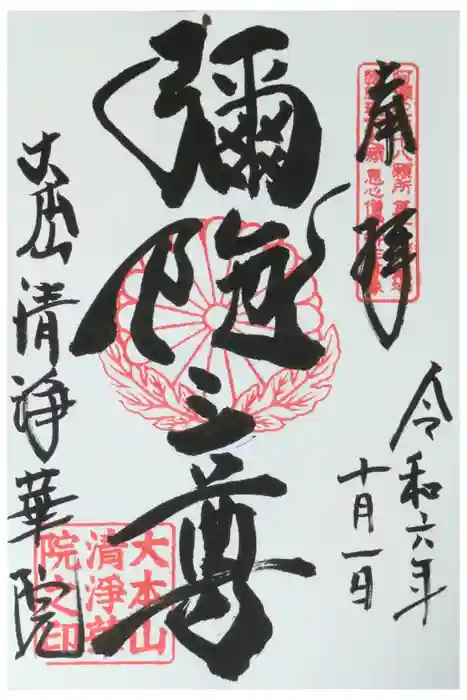 奉拝
令和六年
十月一日
彌陀三尊
大本山 清淨華院
大本山
清淨華
院之印